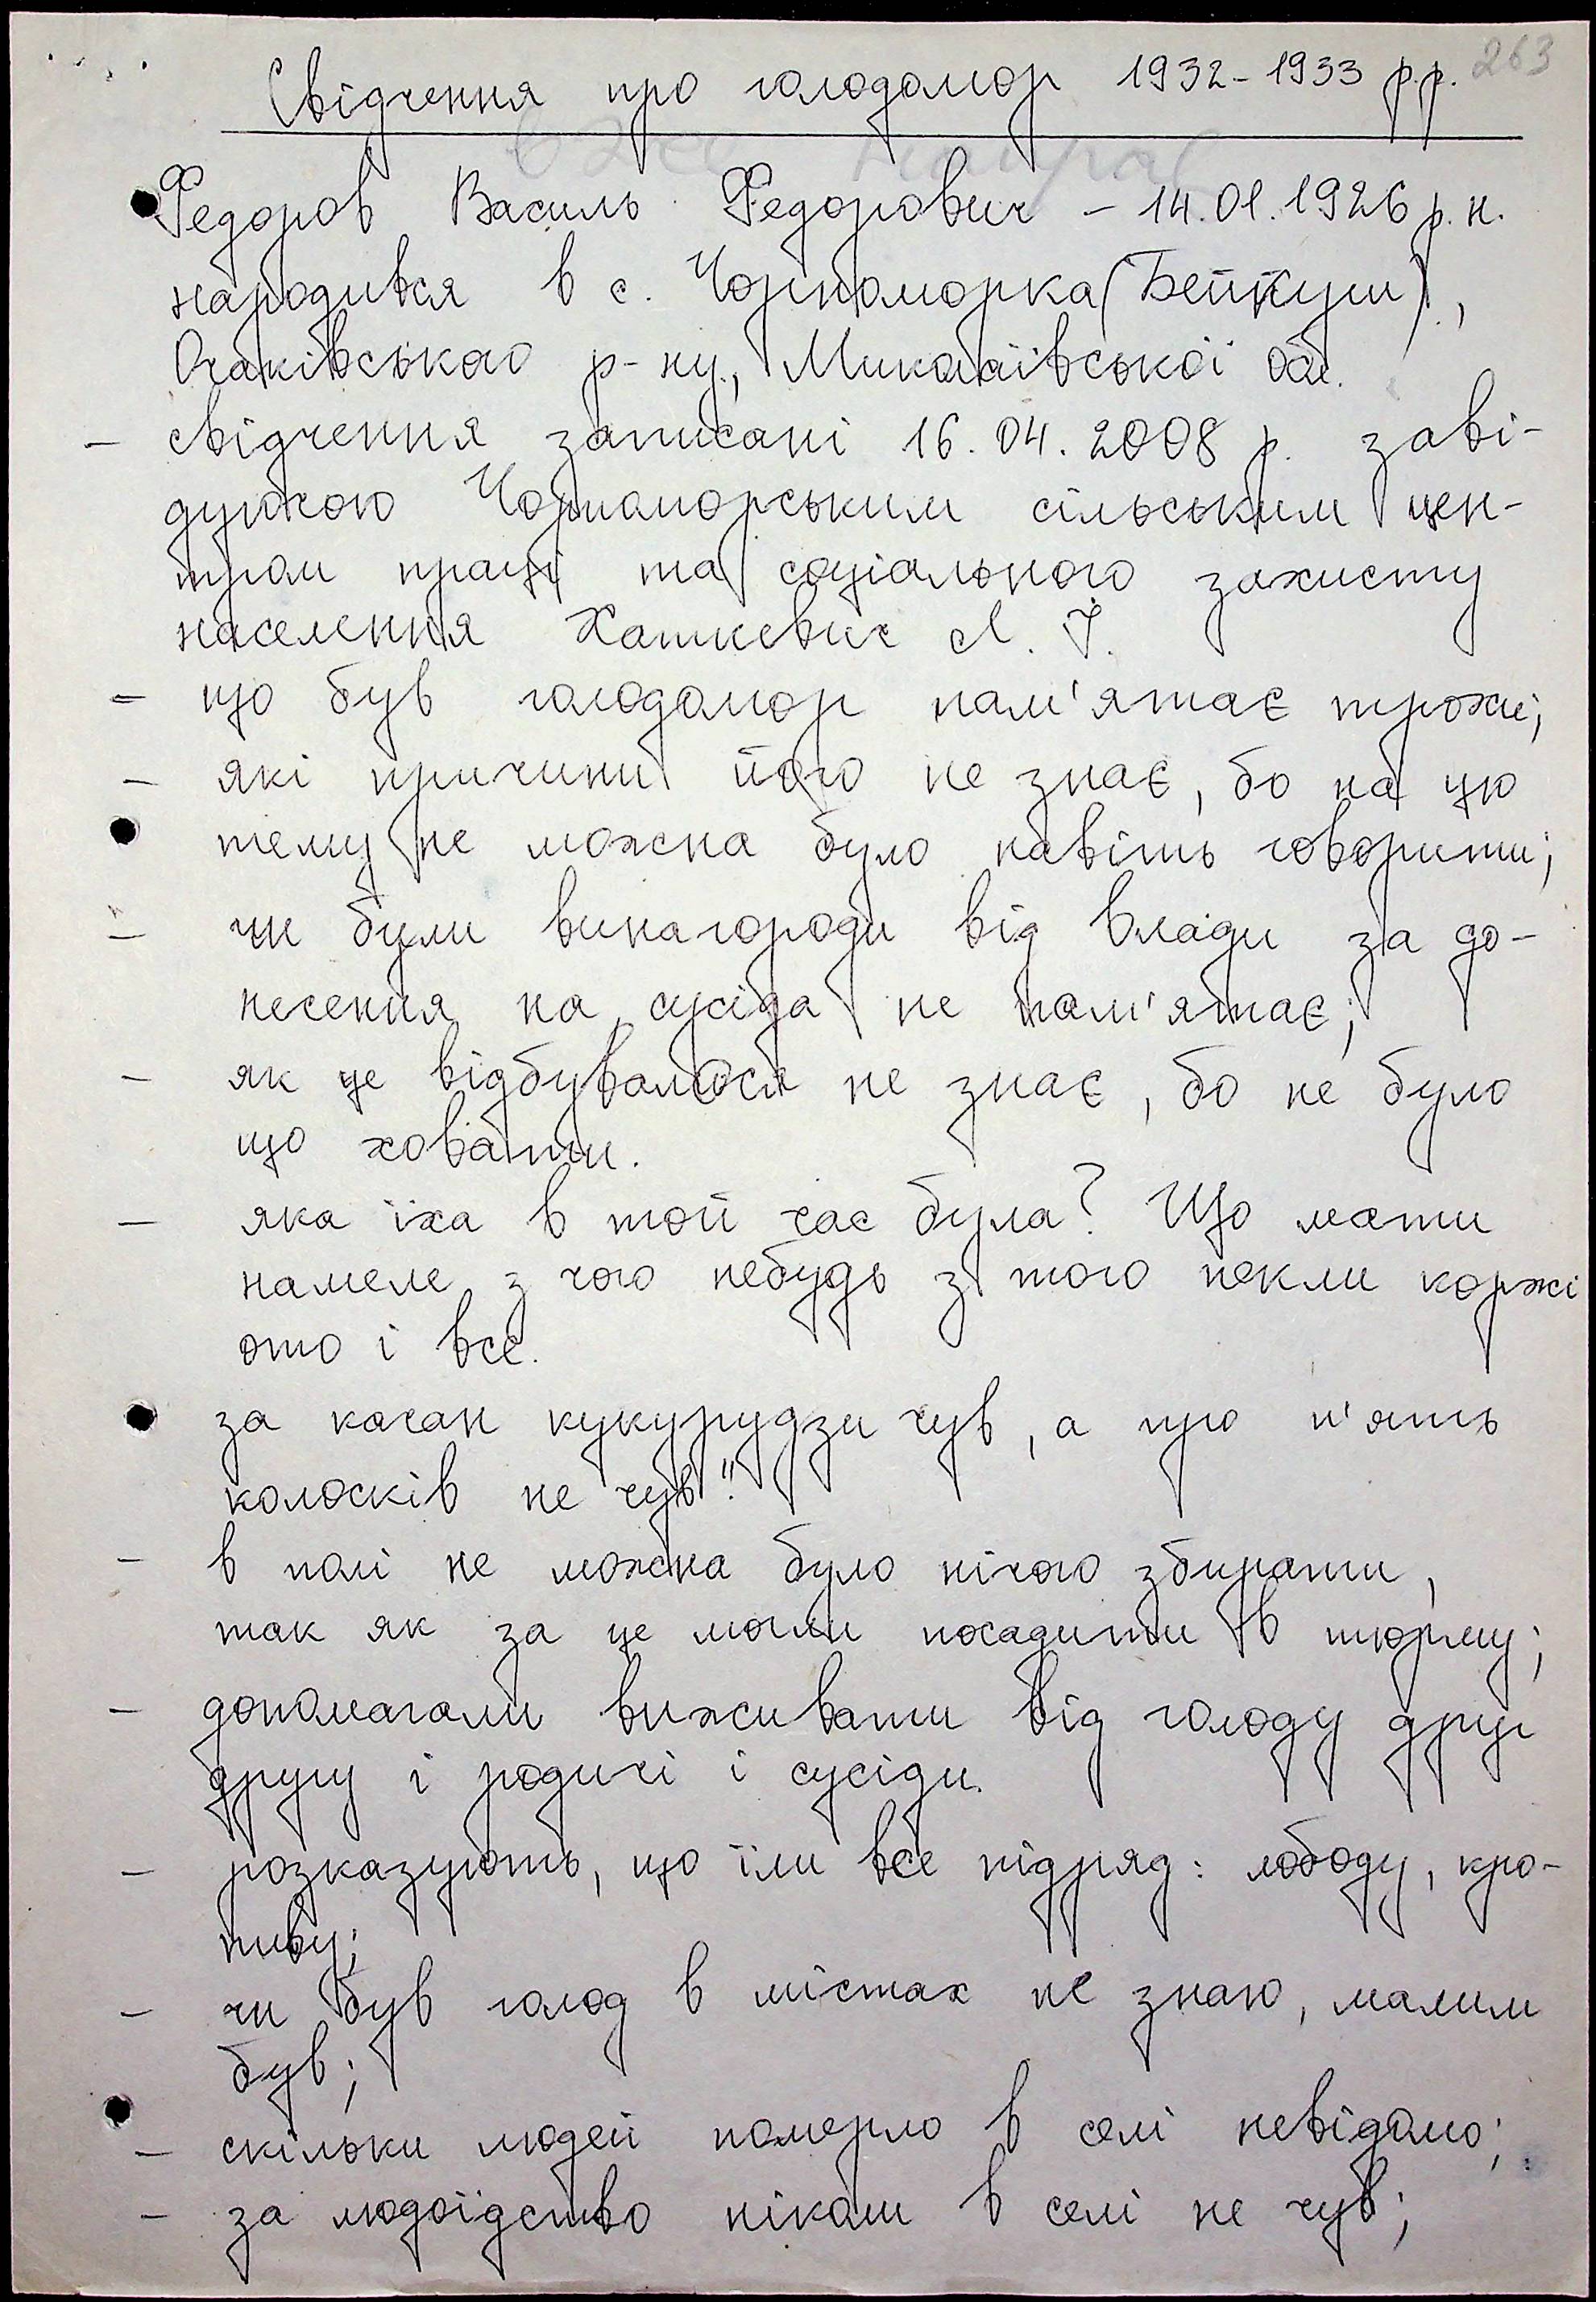 263
Свідчення про голодомор 1932-1933 р.р.
Федоров Василь Федорович - 14.01.1926 р.н.
народився в с. Чорноморка (Бейкуш),
Очаківського р-ну, Миколаївської обл.
- свідчення записані 16.04.2008 р. заві-
дуючою Чорноморським сільським цен-
тром праці та соціального захисту
населення Хашкевич Л. І.
- що був голодомор пам'ятає трохи;
- які причини його не знає, бо на цю
тему не можна було навіть говорити;
- чи були винагороди від влади за до-
несення на сусіда не пам'ятає;
- як це відбувалося не знає, бо не було
що ховати.
- яка їжа в той час була? Що мати
намеле з чого небудь з того пекли коржі
ото і все.
за качан кукурудзи чув, а про п'ять
колосків не чув".
- в полі не можна було нічого збирати,
так як за це могли посадити в тюрму;
- допомагали виживати від голоду друг
другу і родичі і сусіди.
- розказують, що їли все підряд: лободу, кро-
пиву;
- чи був голод в містах не знаю, малим
був;
- скільки людей померло в селі невідомо;
- за людоїдство ніколи в селі не чув;